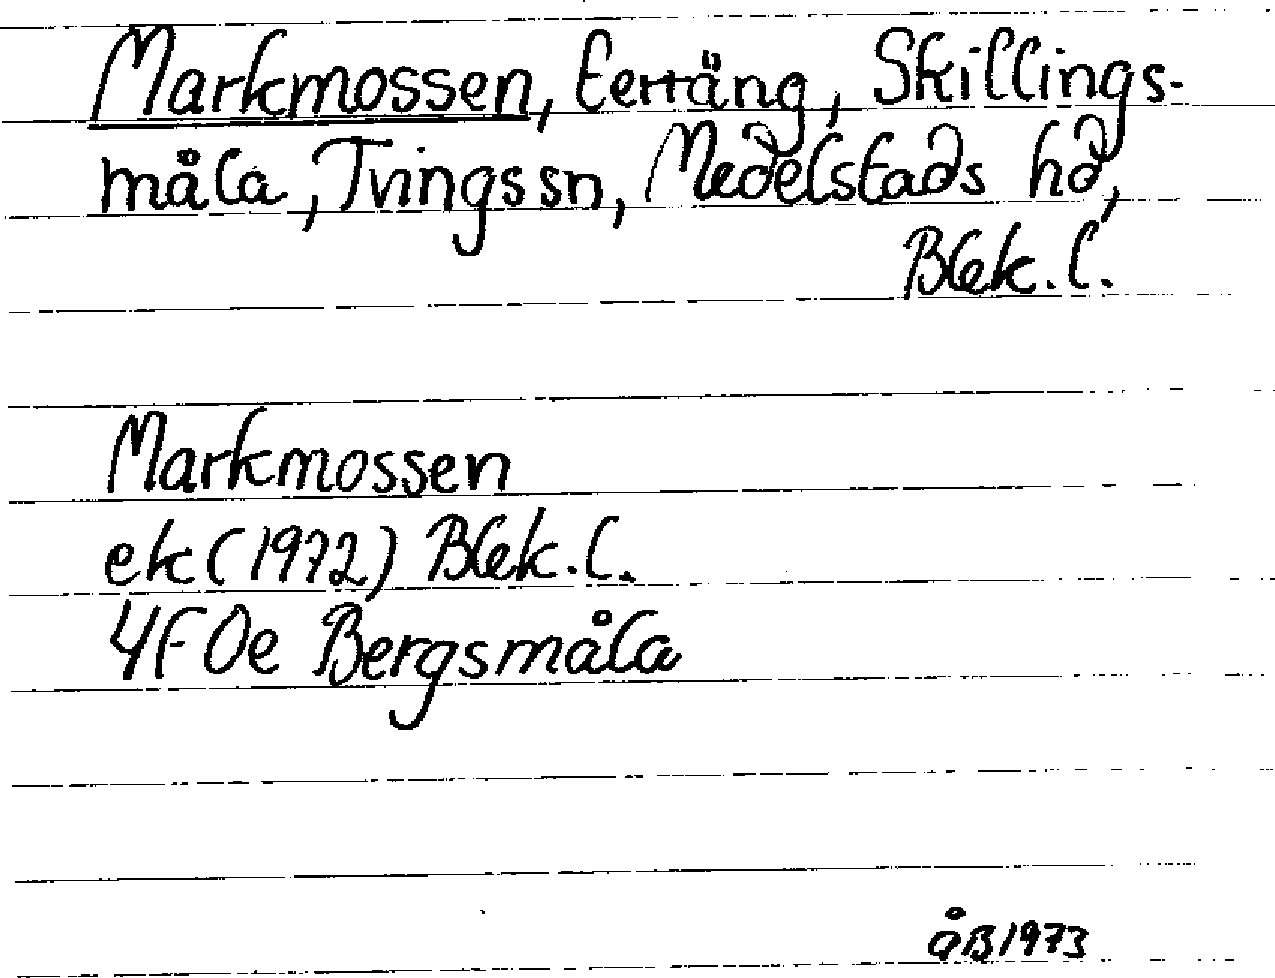 Markmossen, terräng, Skillings-
måla, Tvings sn, Medelstads hd,
Blek. l.
Markmossen
ek (1972) Blek. l.
4F 0e Bergsmåla
åB 1973